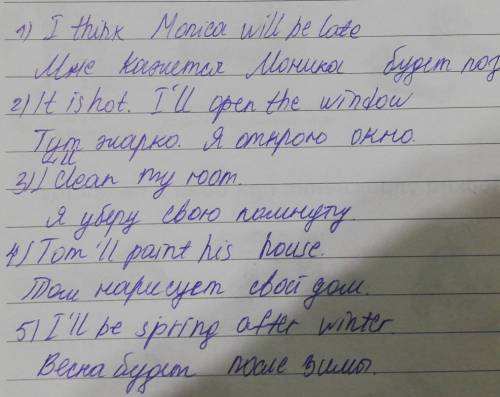 1) I think Monica will be late
Мне кажется Моника будет поз
2) It is hot. I'll open the window
Тут жарко. Я открою окно.
3) I'll clean my room.
Я уберу свою комнату
4) Tom'll paint his house.
Том нарисует свой дом.
5) I'll be spring after winter.
Весна будет после зимы.